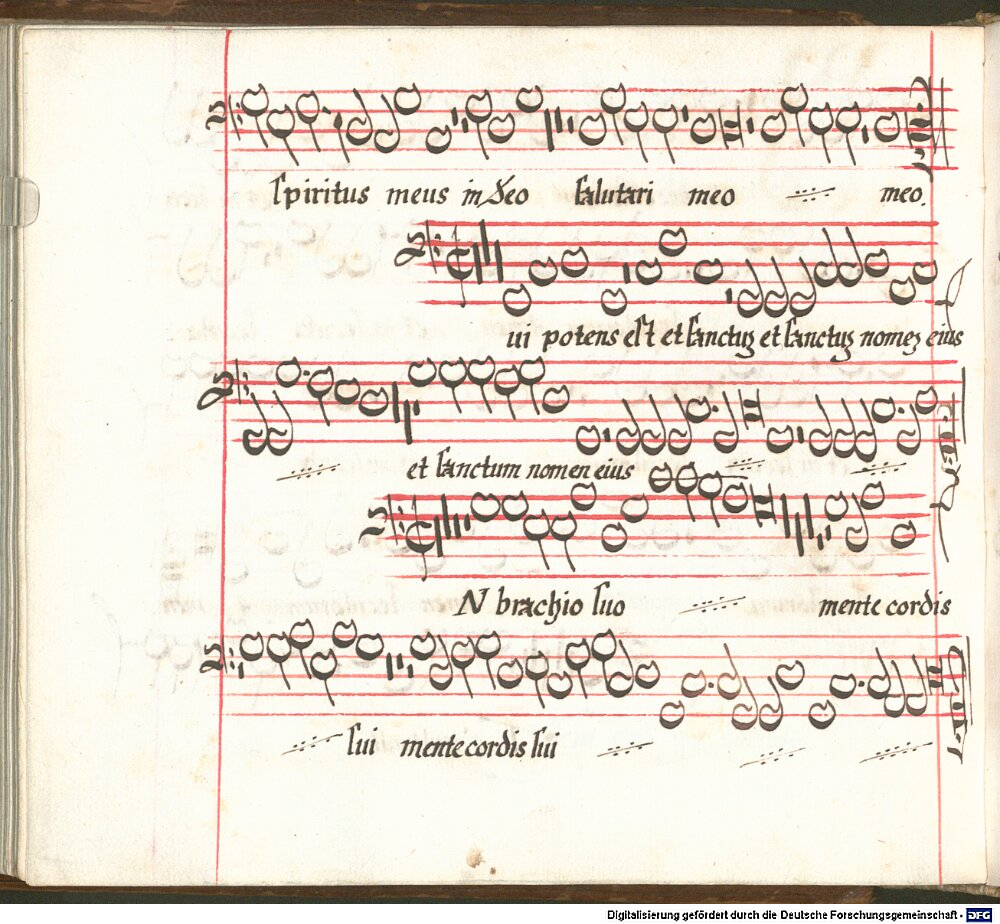 spiritus meus in deo salutari meo meo.
ui potens est et sanctus et sanctus nomen eius
et sanctum nomen eius
N brachio suo mente cordis
sui mente cordis sui
Digitalisierung gefördert durch die Deutsche Forschungsgemeinschaft - DFG